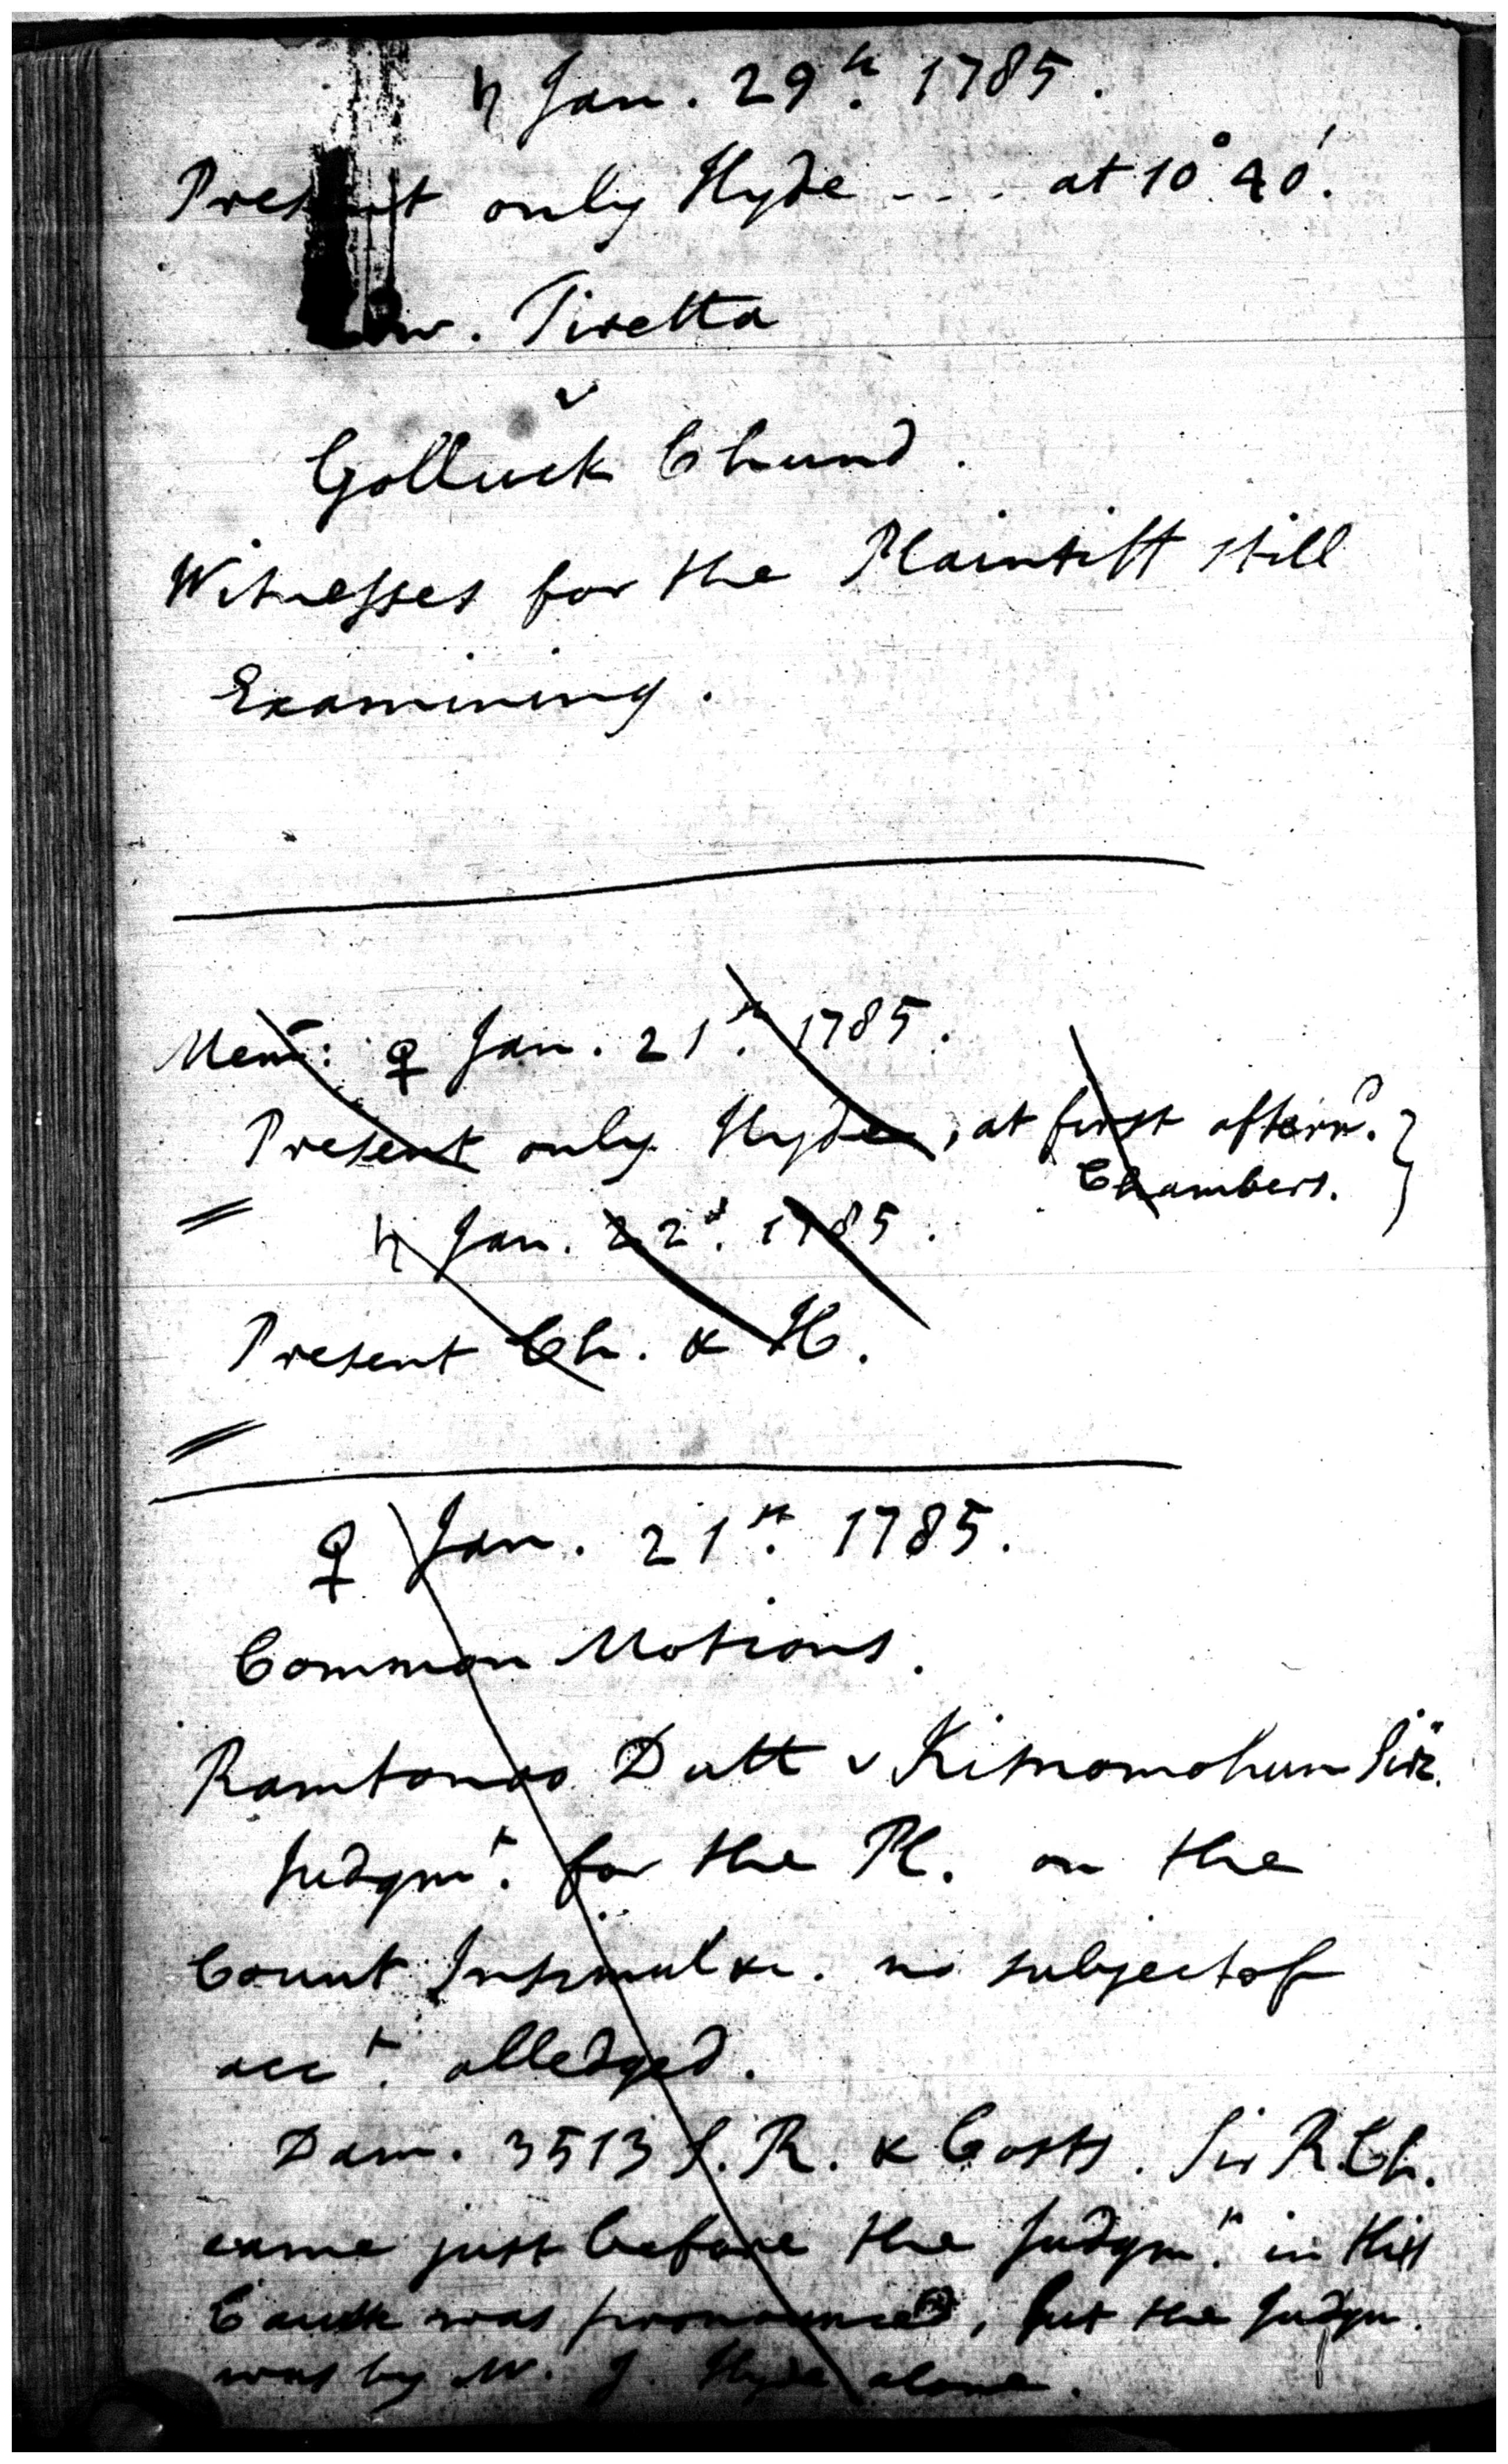 ♄ Jan. 29th. 1785.
Present only Hyde - - - - at 10° 40'.
Edw. Tiretta
v
Golluck Chund.
Witnesses for the Plaintiff still
Examining.
Mem: ♀ Jan. 21st. 1785.
Present only Hyde, at first aftern.d
Chambers. }
♄ Jan. 22d. 1785.
Present Ch. & H.
♀ Jan. 21st. 1785.
Common Motions.
Ramtonoo Dutt v Kisnomohun
Judgmt. for the Pl. on the
Count Insimul &c. no subject of
acct. alledged.
Dam. 3513 S.R. & Costs. Sir R. Ch.
came just before the Judgmt. in this
Cause was pronounced, but the Judgm.
was by Mr. J. Hyde alone.